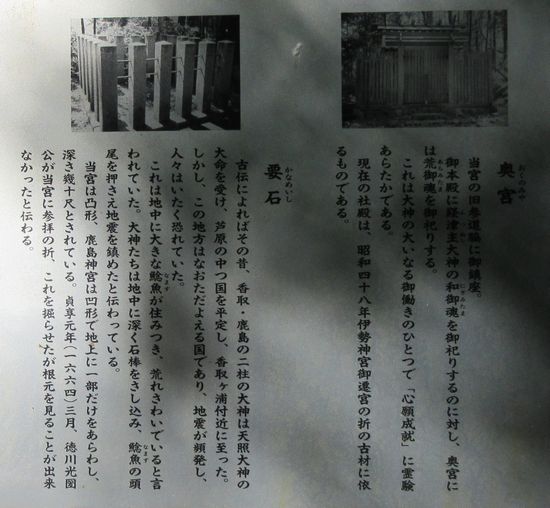 奥宮
おくのみや
当宮の旧参道脇に御鎮座。
御本殿に経津主大神の和御魂を御祀りするのに対し、奥宮に
にぎみたま
は荒御魂を御祀りする。
あらみたま
これは大神の大いなる御働きのひとつで「心願成就」に霊験
あらたかである。
現在の社殿は、昭和四十八年伊勢神宮御遷宮の折の古材に依
るものである。
要石
かなめいし
古伝によればその昔、香取・鹿島の二柱の大神は天照大神の
大命を受け、芦原の中つ国を平定し、香取ヶ浦付近に至った。
しかし、この地方はなおただよえる国であり、地震が頻発し、
人々はいたく恐れていた。
これは地中に大きな鯰魚が住みつき、荒れさわいでいると言
なまず
われていた。大神たちは地中に深く石棒をさし込み、鯰魚の頭
なまず
尾を押さえ地震を鎮めたと伝わっている。
当宮は凸形、鹿島神宮は凹形で地上に一部だけをあらわし、
深さ幾十尺とされている。貞享元年（一六六四）三月、徳川光圀
公が当宮に参拝の折、これを掘らせたが根元を見ることが出来
なかったと伝わる。